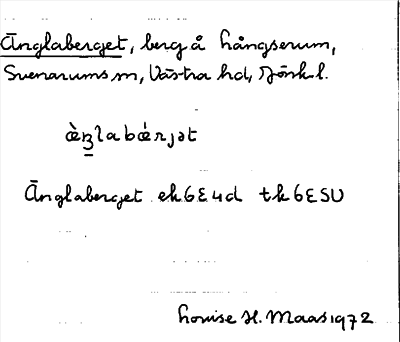 Änglaberget, berg å Långserum,
Svenarums sn, Västra hd, Jönk l.
æ̀ŋlabǽrjət
Änglaberget ek 6E4d tk 6ESV
Louise H. Maas 1972